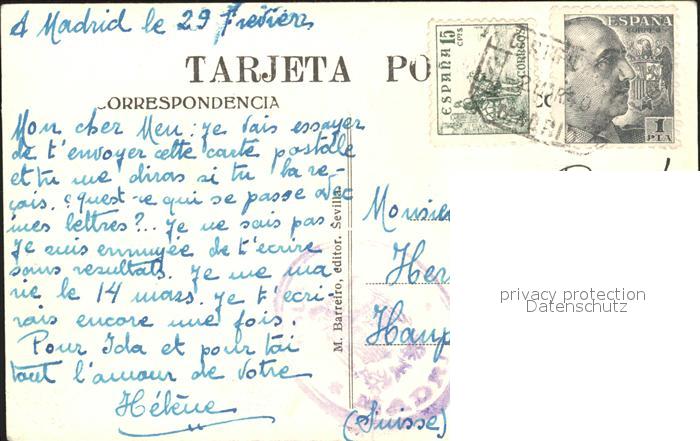 A Madrid le 29 Fevièrs
TARJETA PO
CORRESPONDENCIA
Mon cher Meu: Je vais essayer
de t'envoyer cette carte postale
et tu me diras si tu la re-
çais. ? Quest-ce qui se passe avec
mes lettres?.. Je ne sais pas
Je suis ennuyée de t'écrire
sans resultats. Je me ma-
rie le 14 mars. Je t'ecri-
rais encore une fois.
Pour Ida et pour tai
tout l'amour de votre
Hélène
M. Barreiro, editor, Sevilla
ESPAÑA 15 CTS CORREOS
ESPAÑA
CORREOS
1 PTA
Monsieu
Her
Haup
(Suisse)
privacy protection
Datenschutz